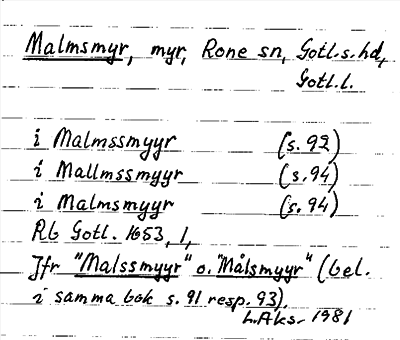 Malmsmyr, myr, Rone sn, Gotl.s.hd,
Gotl.l.
i Malmssmyyr (s. 92)
i Mallmssmyyr (s. 94)
i Malmsmyyr (s. 94)
Rb Gotl. 1653, 1,
Jfr "Malssmyyr" o. "Målsmyyr" (bel.
i samma bok s. 91 resp. 93).
L.Aks- 1981